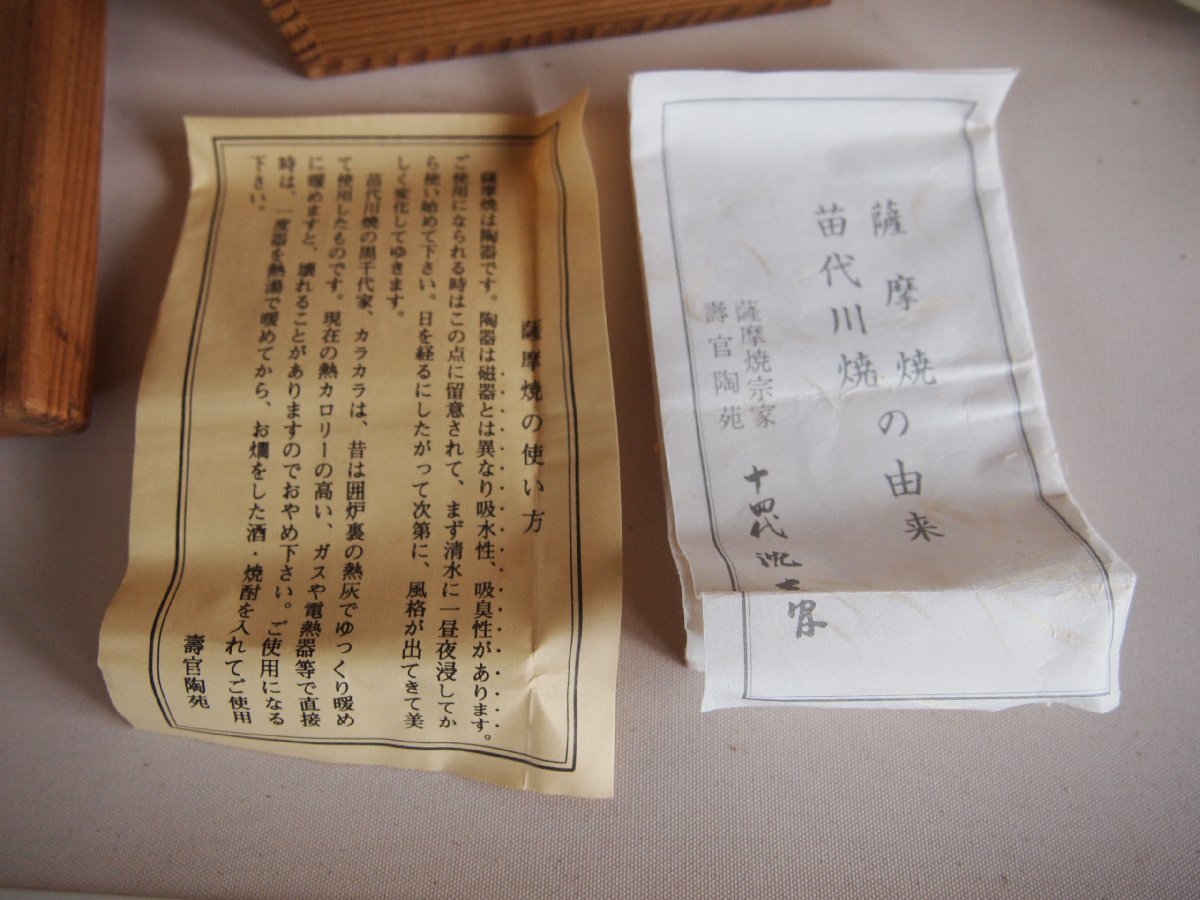 薩摩焼の由来
苗代川焼
薩摩焼宗家
壽官陶苑
十四代 沈壽官
薩摩焼の使い方
薩摩焼は陶器です。陶器は磁器とは異なり吸水性、吸臭性があります。
ご使用になられる時はこの点に留意されて、まず清水に一昼夜浸してか
ら使い始めて下さい。日を経るにしたがって次第に、風格が出てきて美
しく変化してゆきます。
苗代川焼の黒千代家、カラカラは、昔は囲炉裏の熱灰でゆっくり暖め
て使用したものです。現在の熱カロリーの高い、ガスや電熱器等で直接
に暖めますと、壊れることがありますのでおやめ下さい。ご使用になる
時は、一度器を熱湯で暖めてから、お燗をした酒・焼酎を入れてご使用
下さい。
壽官陶苑